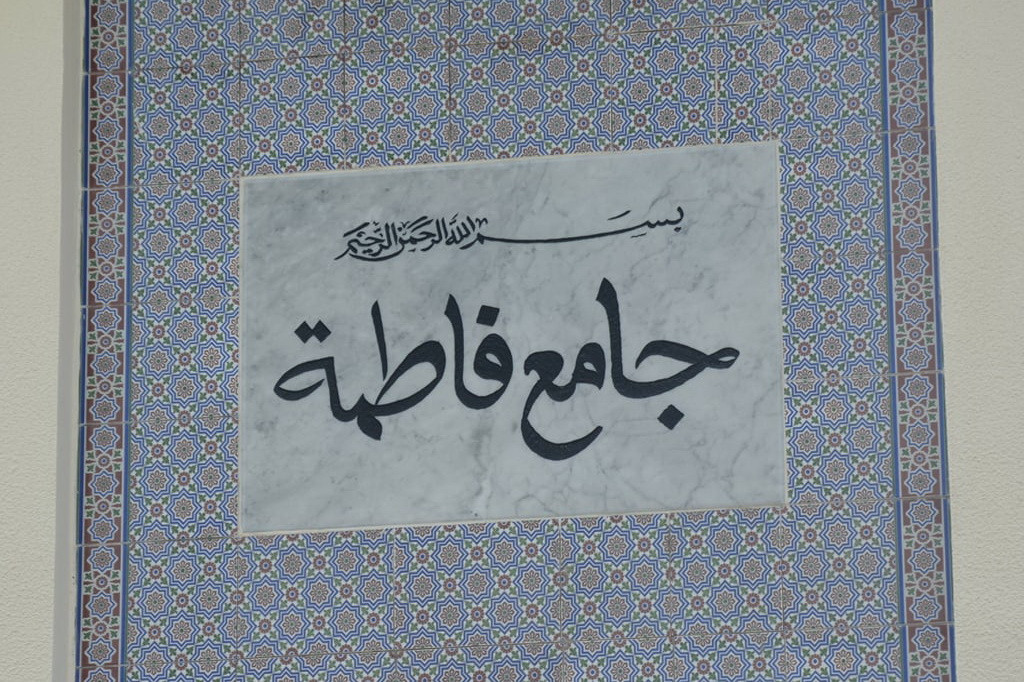 بسم الله الرحمن الرحيم
جامع فاطمة